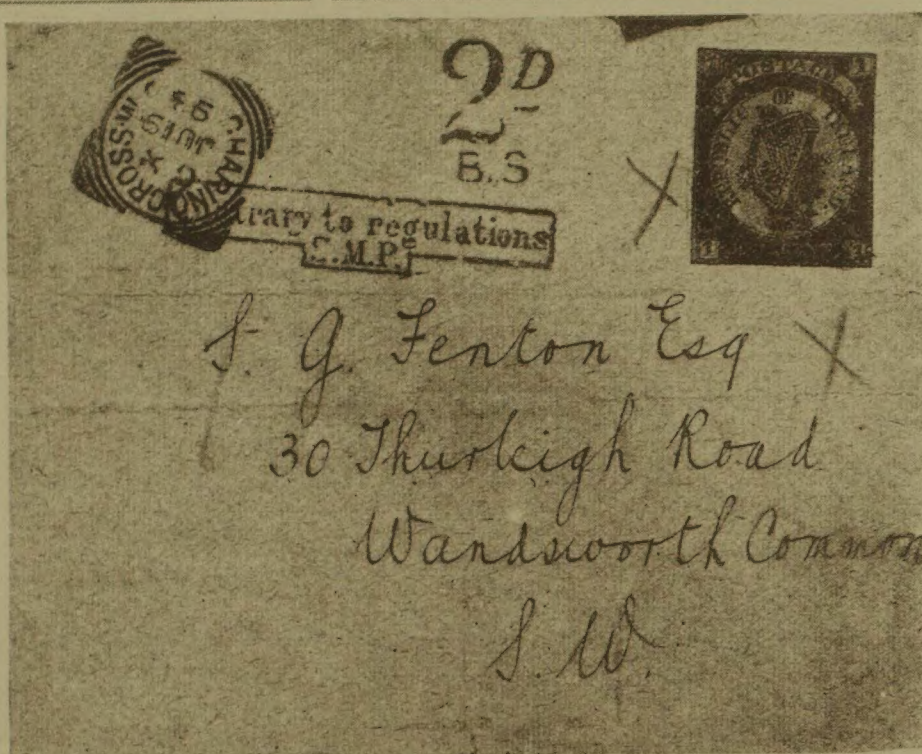 CHARING CROSS W.
X
JU 19
94
2D
B.S
trary to regulations
.M.P.
POSTAGE
OF
1
1
1
S. G. Fenton Esq
30 Thurleigh Road
Wandsworth Common
S. W.